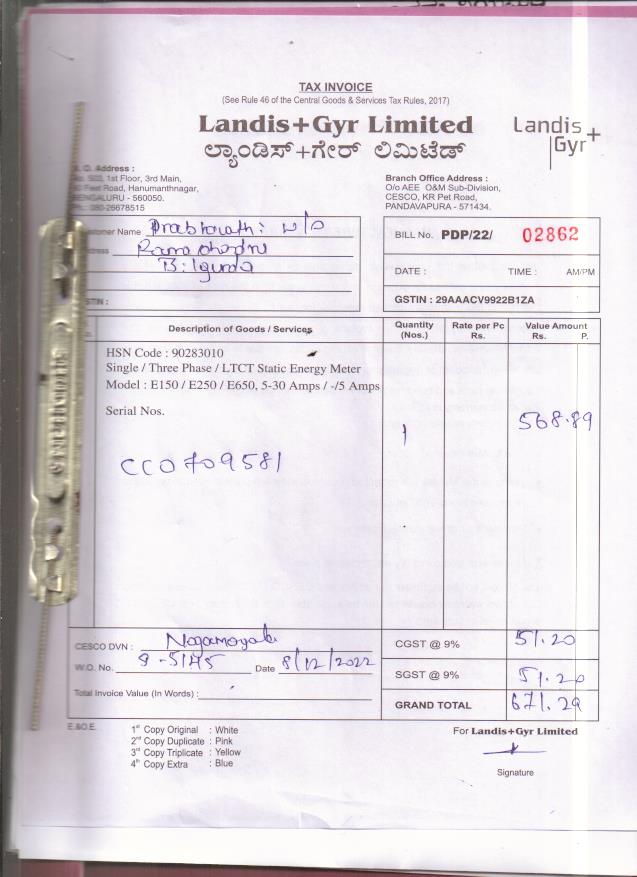 TAX INVOICE
(See Rule 46 of the Central Goods & Services Tax Rules, 2017)
Landis+Gyr Limited
ಲ್ಯಾಂಡಿಸ್+ಗೇರ್ ಲಿಮಿಟೆಡ್
Landis
Gyr+
Address :
1st Floor, 3rd Main,
Road, Hanumanthnagar,
BENGALURU - 560050.
080-26678515
Branch Office Address :
O/o AEE O&M Sub-Division,
CESCO, KR Pet Road,
PANDAVAPURA - 571434.
Customer Name
BILL No. PDP/22/ 02862
DATE : TIME : AM/PM
GSTIN : 29AAACV9922B1ZA
Description of Goods / Services
Quantity (Nos.)
Rate per Pc Rs.
Value Amount Rs. P.
HSN Code : 90283010
Single / Three Phase / LTCT Static Energy Meter
Model : E150 / E250 / E650, 5-30 Amps / -/5 Amps
Serial Nos.
1 568.89
CC0709581
CESCO DVN :
CGST @ 9% 51.20
W.O. No. Date 8/12/2022
SGST @ 9% 51.20
Total Invoice Value (In Words) :
GRAND TOTAL 671.29
E.&O.E.
1st Copy Original : White
2nd Copy Duplicate : Pink
3rd Copy Triplicate : Yellow
4th Copy Extra : Blue
For Landis+Gyr Limited
Signature